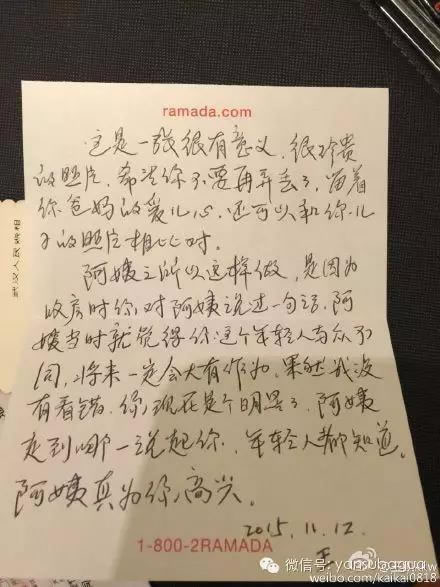 ramada.com
这是一张很有意义、很珍贵
的照片,希望你不要再弄丢了,留着
你爸妈的爱儿心,还可以和你儿
子的照片相比对。
阿姨之所以这样做,是因为
收房时你对阿姨说过一句话,阿
姨当时就觉得你这个年轻人与众不
同,将来一定会大有作为,果然我没
有看错。你现在是个明星了,阿姨
走到哪一说起你,年轻人都知道。
阿姨真为你高兴。
2015.11.12.
王
1-800-2RAMADA
微信号: yansubagua
weibo.com/kaikai0818